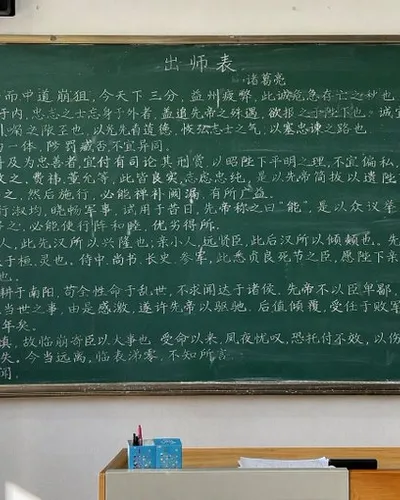 出师表
诸葛亮
而中道崩狙,今天下三分,益州疲弊,此诚危急存亡之秋也。
于内,忠志之士忘身于外者,盖追先帝之殊遇,欲报之于陛下也。诚宜
以先先看道德,恢弘志士之气,以塞忠谏之路也。
为一体,陟罚臧否,不宜异同。
科及为忠善者,宜付有司论其刑赏,以昭陛下平明之理,不宜偏私,
攸之,费祎,董允等,此皆良实,志虑忠纯,是以先帝简拔以遗陛
之,然后施行,必能裨补阙漏,有所广益。
行淑均,晓畅军事,试用于昔日,先帝称之曰“能”,是以众议举
之,必能使行阵和睦,优劣得所。
人,此先汉所以兴隆也;亲小人,远贤臣,此后汉所以倾颓也。先
于桓,灵也。侍中,尚书,长史,参军,此悉贞良死节之臣,愿陛下亲
也。
耕于南阳,苟全性命于乱世,不求闻达于诸侯。先帝不以臣卑鄙,
当世之事,由是感激,遂许先帝以驱驰。后值倾覆,受任于败军
年矣。
慎,故临崩寄臣以大事也。受命以来,夙夜忧叹,恐托付不效,以伤
失。今当远离,临表涕零,不知所言。
闻。